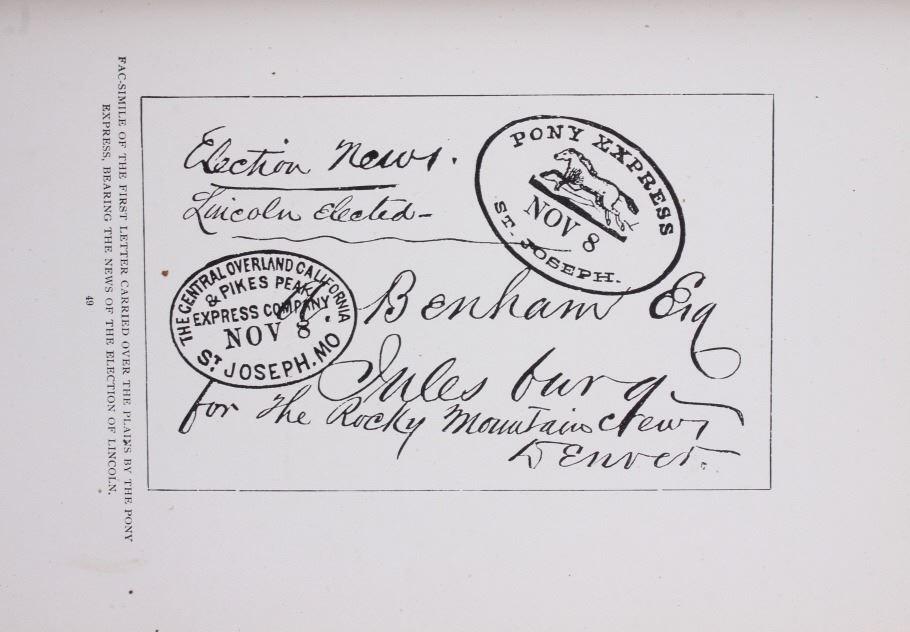 Election News.
Lincoln Elected-
PONY EXPRESS
NOV 8
ST. JOSEPH.
THE CENTRAL OVERLAND CALIFORNIA
& PIKES PEAK
EXPRESS COMPANY
NOV 8
ST JOSEPH. MO
A. Benham Esq
Julesburg
for The Rocky Mountain News
Denver.
FAC-SIMILE OF THE FIRST LETTER CARRIED OVER THE PLAINS BY THE PONY
EXPRESS, BEARING THE NEWS OF THE ELECTION OF LINCOLN.
49